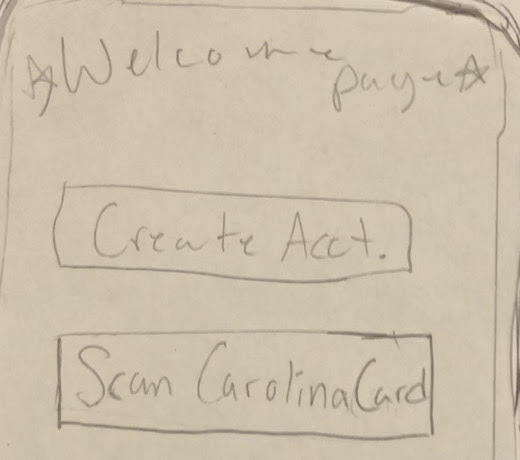 ☆Welcome
page☆
Create Acct.
Scan CarolinaCard